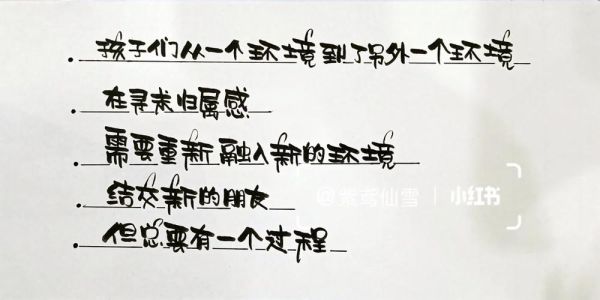 孩子们从一个环境到了另外一个环境
在寻求归属感
需要重新融入新的环境
结交新的朋友
但总要有一个过程
@紫鸢仙雪 | 小红书